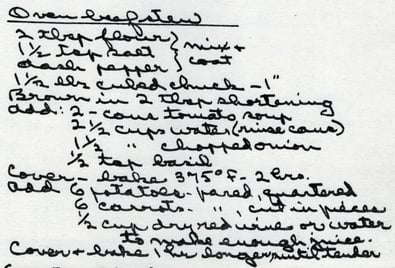 Oven beef stew
2 tbsp flour } mix +
1 1/2 tsp salt } coat
dash pepper
1 1/2 lbs cubed chuck - 1"
Brown in 2 tbsp shortening
add: 2 - cans tomato soup
2 1/2 cups water (rinse cans)
1 1/2 " chopped onion
1/2 tsp basil
Cover - bake 375°F - 2 hrs.
add 6 potatoes - pared, quartered
6 carrots - " , cut in pieces
1/2 cup dry red wine or water
to make enough juice.
Cover + bake 1 hr longer until tender